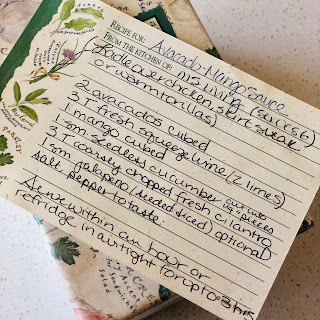 RECIPE FOR: Avocado-Mango sauce
FROM THE KITCHEN OF: MS Living (5/2006)
(Ladle over chicken, skirt steak
or warm tortillas)
2 avocados cubed
3 T fresh squeeze lime (2 limes)
1 mango cubed
1 sm seedless cucumber cut into 1/4" pieces
3 T coarsly chopped fresh cilantro
1 sm jalapeño (seeded & diced) optional
salt & pepper to taste.
Serve within an hour or
refridge in air tight for up to 3 hrs
FENNEL
CHIVES
PARSLEY